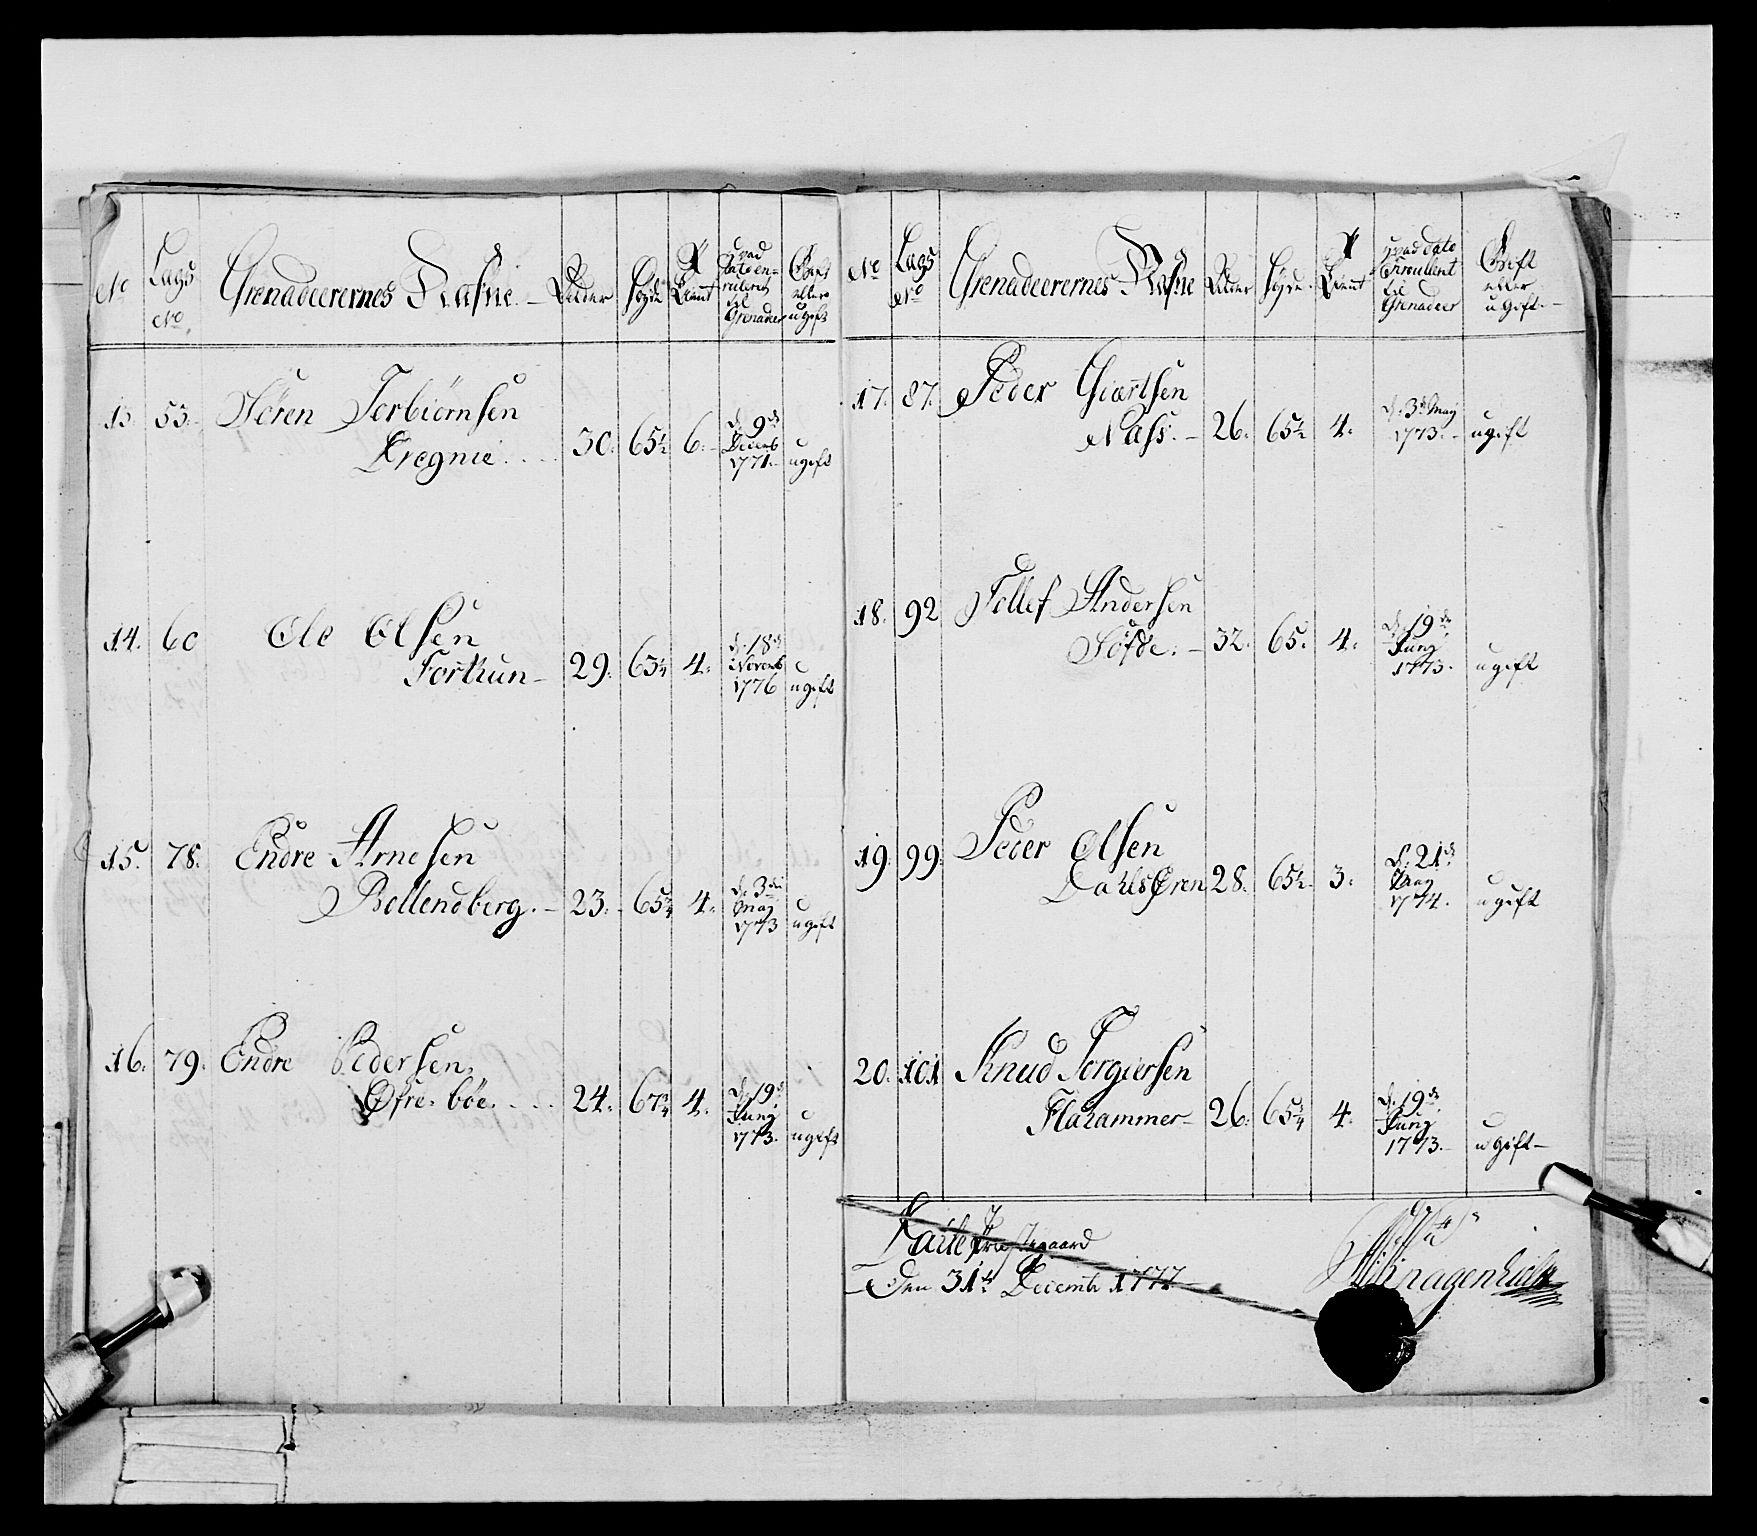 No Lags No. Grenadeerernes Nafne Alder Höyde Tient Hvad Dato en-rulleret til Grenadeer Gift eller ugift
13 53. Sören Torbiörnsen
Dregnie. 30. 65½ 6. d. 9de Decemb 1771. ugift
14. 60 Ole Olsen
Forthun 29. 63¼ 4. d. 18de Novemb 1776 ugift
15. 78. Endre Arnesen
Bollendberg. 23. 65¾ 4. d. 3die May 1773 ugift
16. 79. Endre Pedersen
Øfre böe. 24. 67¾ 4. d. 19de Juny 1773. ugift
No Lags No Grenadeerernes Nafne Alder Höyde. Tient Hvad Date Enroullert til Grenadeer Gift eller ugift.
17. 87. Peder Giertsen
Nass. 26. 65½ 4. d. 3de May 1773. ugift
18. 92 Tollef Andersen
Söfde. 32. 65. 4. d. 19de Juny 1773. ugift
19. 99. Peder Olsen
Dahlsøren 28. 65½ 3. d. 21de May 1774. ugift
20. 101 Knud Torgiersen
Flahammer 26. 65¾ 4. d. 19de Juny 1773. ugift
Præstegaard
Den 31te Decembr 1777